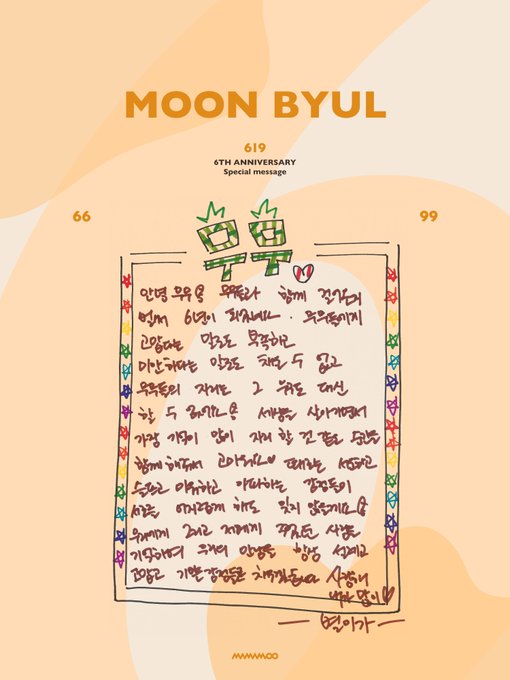 MOON BYUL
619
6TH ANNIVERSARY
Special message
66
99
무무
안녕 무무 무무들과 함께 걸어온지
벌써 6년이 되었네요. 무무들에게
고맙다는 말로도 부족하고
미안하다는 말로도 채울 수 없고
무무들의 자리는 그 누구도 대신
할 수 없어요 세상을 살아가면서
가장 기억이 많이 자리 할 것 같은 순간을
함께 해줘서 고마워요 때로는
슬프고 아파하는 감정들이
서로를 해도 잊지 않을게요
우리에게 그리고 저에게 사랑을
기억하며 우리의 만남을 항상
고맙고 기쁜 사랑해
내가 많이
- 별이가 -
MAMAMOO